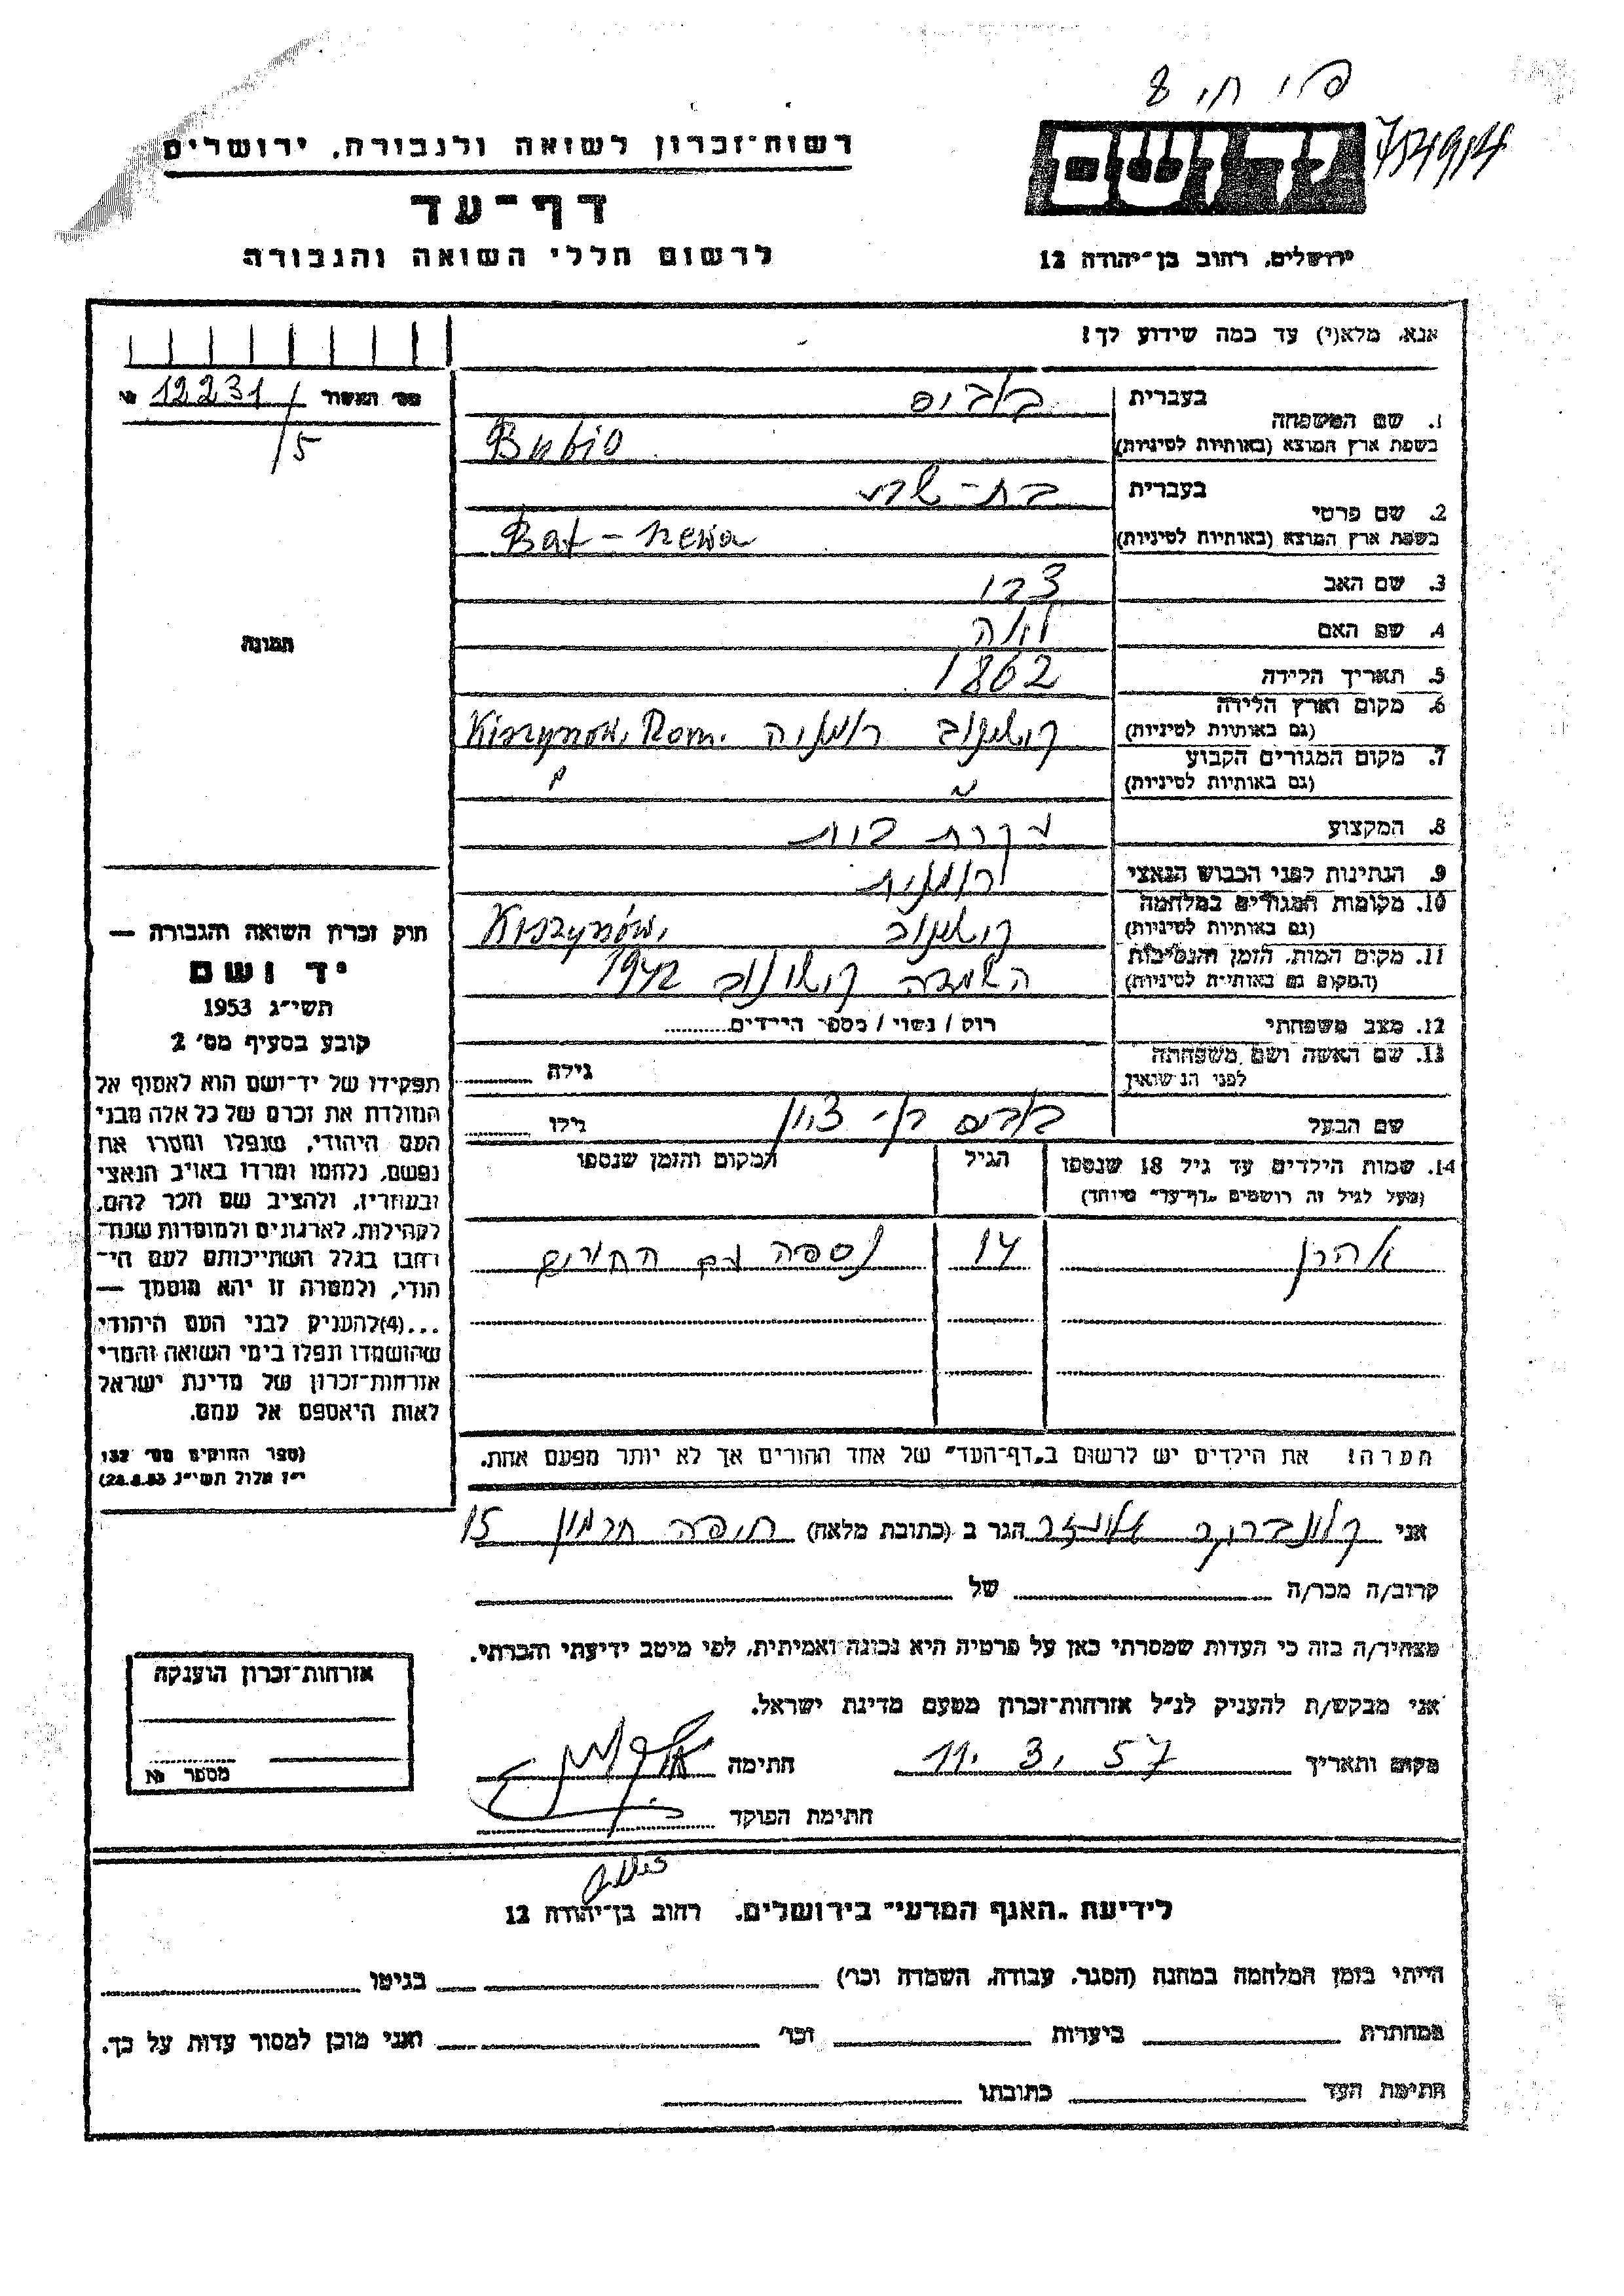 רשות־זכרון לשואה ולגבורה, ירושלים
יד ושם
דף־עד
לרשום חללי השואה והגבורה
ירושלים, רחוב בן־יהודה 12
אנא, מלא(י) עד כמה שידוע לך!
מס׳ האשור 12231/5 №
1. שם המשפחה
בעברית
בשפת ארץ המוצא (באותיות לטיניות)
2. שם פרטי
בעברית בת-שבע
בשפת ארץ המוצא (באותיות לטיניות)
3. שם האב
4. שם האם
5. תאריך הלידה 1862
6. מקום וארץ הלידה קישינוב רומניה Kiszynów, Rom.
(גם באותיות לטיניות)
7. מקום המגורים הקבוע
(גם באותיות לטיניות)
8. המקצוע עקרת בית
9. הנתינות לפני הכבוש הנאצי רומנית
10. מקומות המגורים במלחמה קישינוב Kiszynów,
(גם באותיות לטיניות)
11. מקום המות, הזמן והנסיבות השמדה קישינוב 1942
(המקום גם באותיות לטיניות)
12. מצב משפחתי רוק / נשוי / מספר הילדים
13. שם האשה ושם משפחתה
לפני הנשואין גילה
שם הבעל בן ציון גילו
14. שמות הילדים עד גיל 18 שנספו הגיל המקום והזמן שנספו
(מעל לגיל זה רושמים „דף־עד״ מיוחד)
אהרן 14 נספה עם ההורים
הערה! את הילדים יש לרשום ב„דף־העד״ של אחד ההורים אך לא יותר מפעם אחת.
תמונה
חוק זכרון השואה והגבורה —
יד ושם
תשי״ג 1953
קובע בסעיף מס׳ 2
תפקידו של יד־ושם הוא לאסוף אל
המולדת את זכרם של כל אלה מבני
העם היהודי, שנפלו ומסרו את
נפשם, נלחמו ומרדו באויב הנאצי
ובעוזריו, ולהציב שם וזכר להם,
לקהילות, לארגונים ולמוסדות שנח־
רבו בגלל השתייכותם לעם הי־
הודי, ולמטרה זו יהא מוסמך —
...(4)להעניק לבני העם היהודי
שהושמדו ונפלו בימי השואה והמרי
אזרחות־זכרון של מדינת ישראל
לאות היאספם אל עמם.
(ספר החוקים מס׳ 132
י״ז אלול תשי״ג 28.8.53)
אני הגר ב (כתובת מלאה) חיפה חרמון 15
קרוב/ה מכר/ה של
מצהיר/ה בזה כי העדות שמסרתי כאן על פרטיה היא נכונה ואמיתית, לפי מיטב ידיעתי והכרתי.
אני מבקש/ת להעניק לנ״ל אזרחות־זכרון מטעם מדינת ישראל.
מקום ותאריך 11. 3. 57 חתימה
חתימת הפוקד
אזרחות־זכרון הוענקה
מספר №
לידיעת „האגף המדעי״ בירושלים, רחוב בן־יהודה 12
הייתי בזמן המלחמה במחנה (הסגר, עבודה, השמדה וכו׳) בגיטו
במחתרת ביערות וכו׳ ואני מוכן למסור עדות על כך.
חתימת העד כתובתו